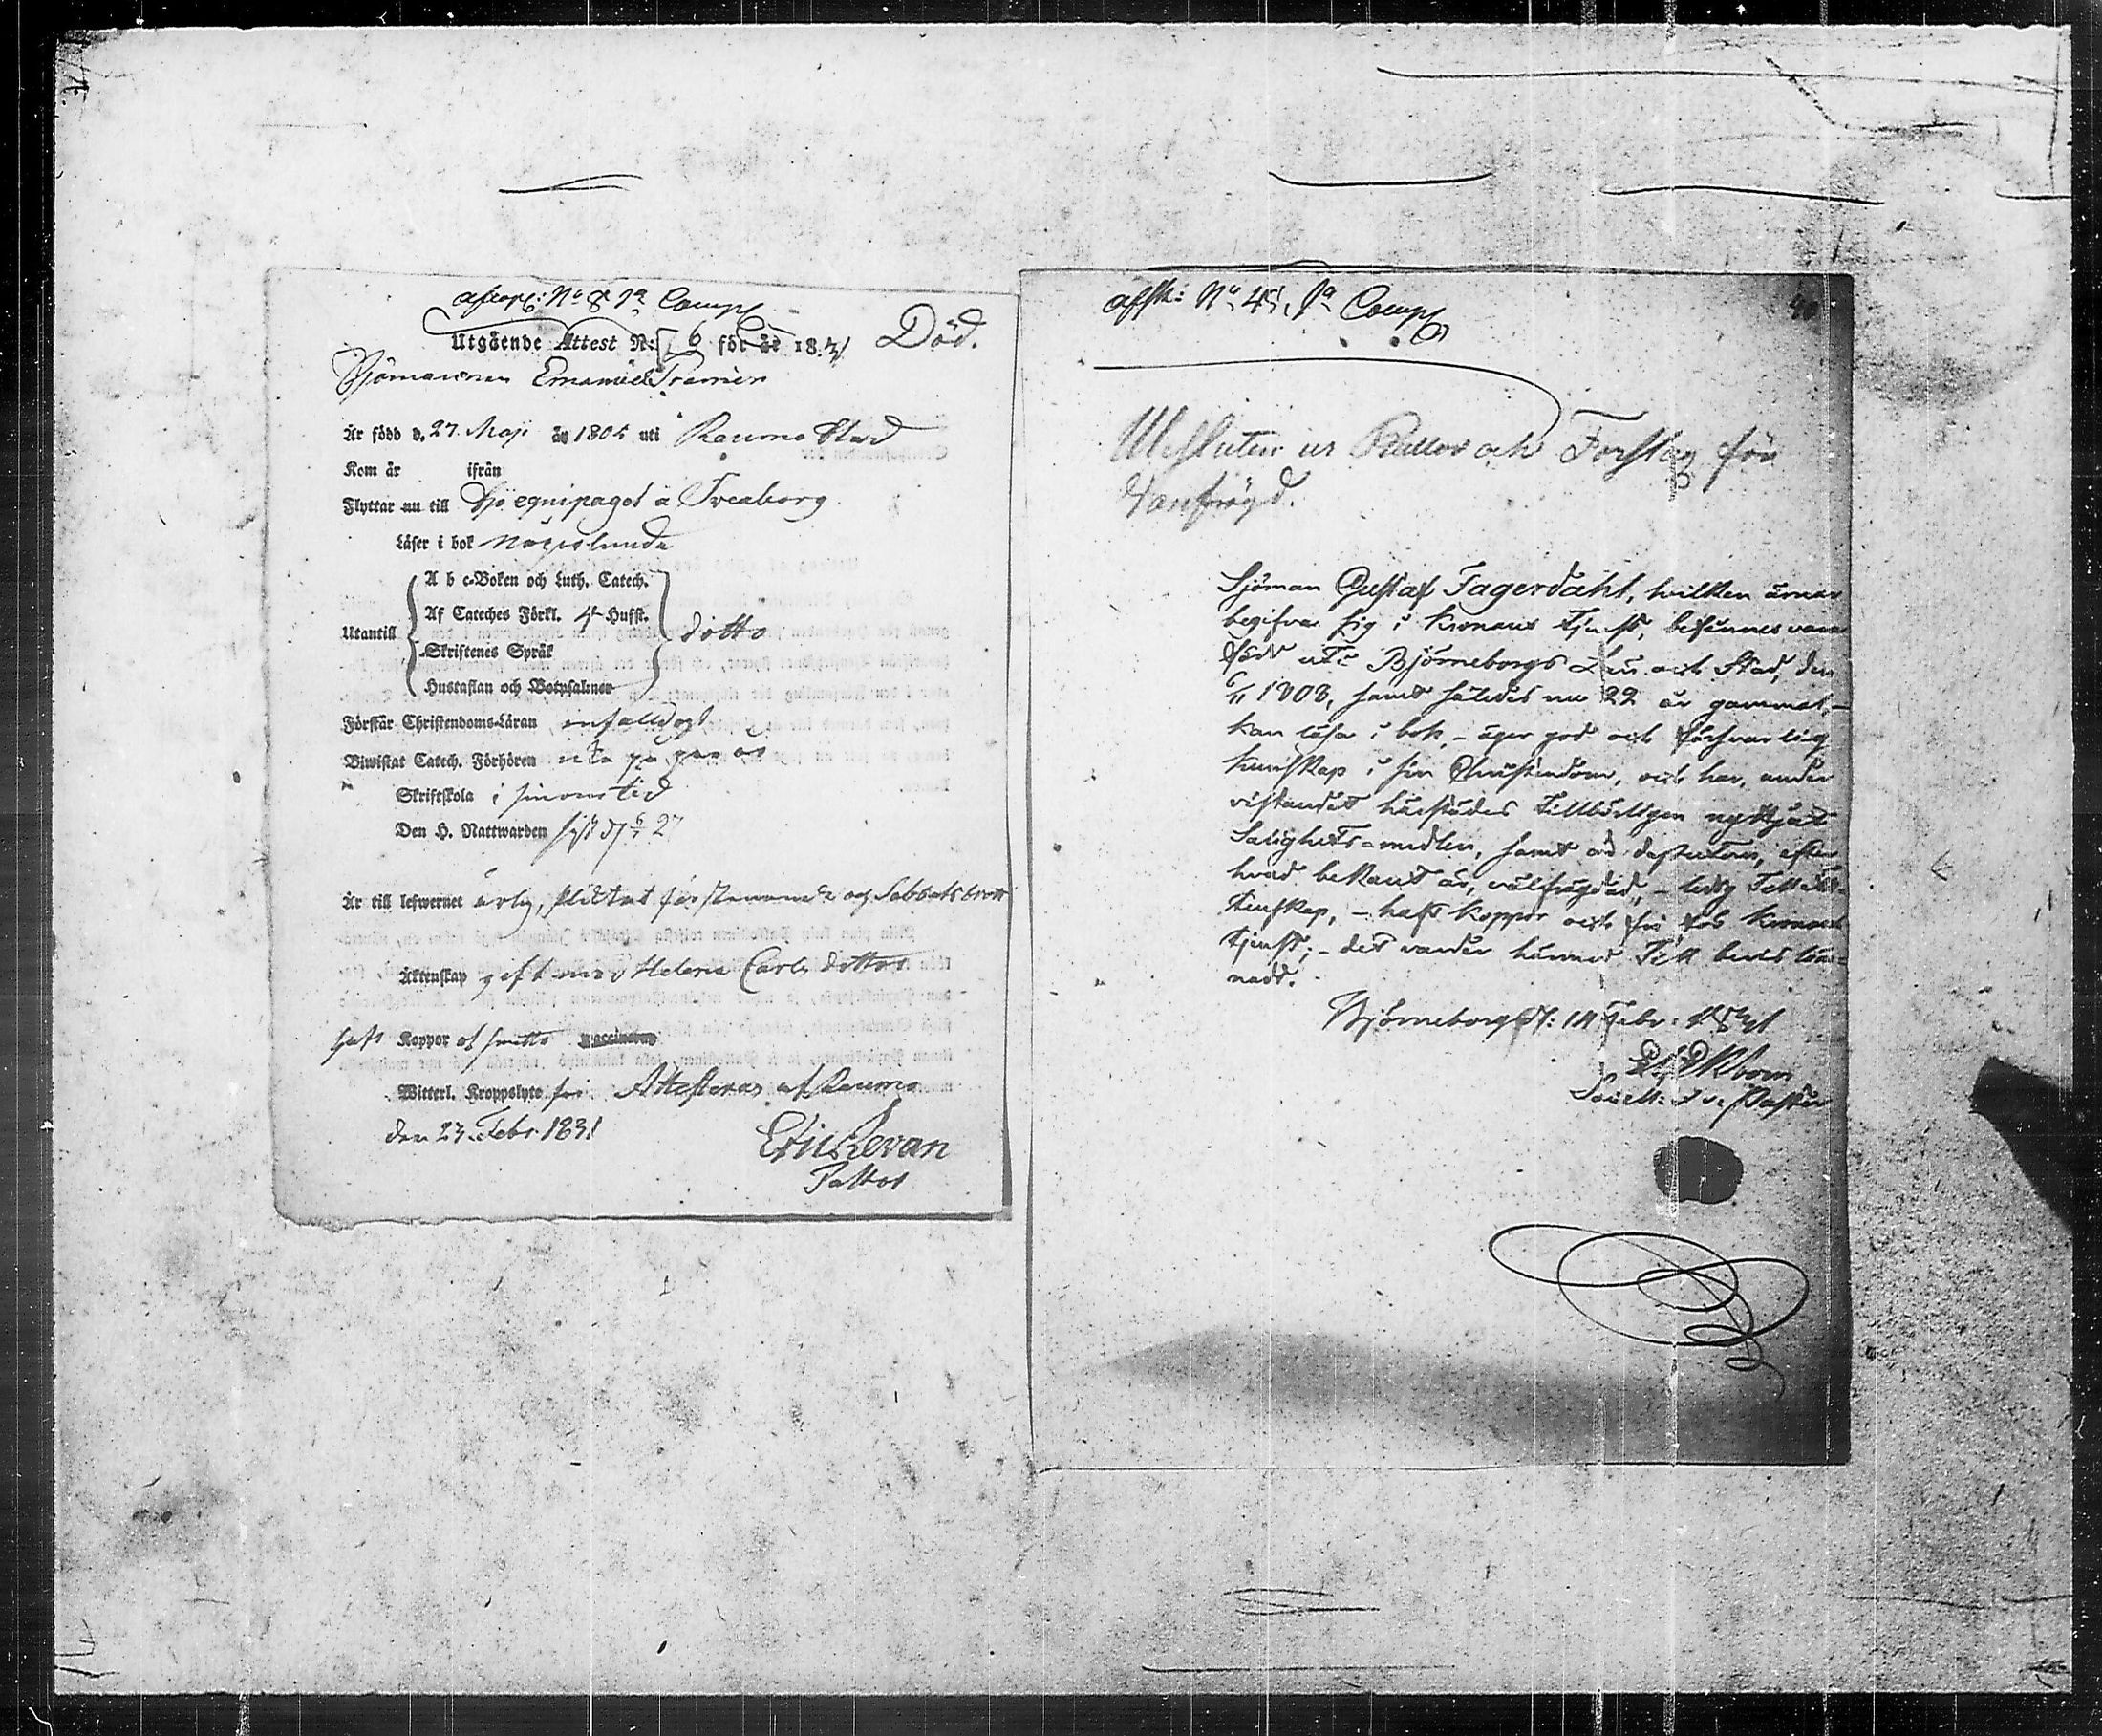 Afskrf: No 8 1a Comp
Utgående Attest N: 6 för år 1831 Död.
Sjömannen Emanuel Tramèr
Är född d. 27 Maji år 1804 uti Raumo Stad
Kom år ifrån
Flyttar nu till Sjö equipaget å Sveaborg
Läser i bok någorlunda
Utantill
A b c-Boken och Luth. Catech.
Af Cateches Förkl. 4 Hufst.
Skriftenes Språk
Hustaflan och Botpsalmer
ditto
Förstår Christendoms-Läran enfalldigt
Biwistat Catech. Förhören
Skriftskola i sinom tid
Den H. Nattwarden sist d 27
Är till lefwernet ärlig, pliktat för och Sabbatsbrott
Äktenskap gift med Helena Carls dotter
haft Koppor vaccinerad
Witterl. Kroppslyte fri Attesteras af Raumo
den 23 Febr. 1831
Eric Revan
Pastor
Afsk: No 45, 1a Comp
40
Utesluten ur Rullor och Förslag för
Vanfrägd.
Sjöman Gustaf Fagerdahl, hvilken ärnar
begifva sig i Kronans tjenst, befinnes vara
född uti Björneborgs Län och Stad, den
6/11 1808, samt således nu 22 år gammal, –
kan läsa i bok, – äger god och försvarlig
kunskap i sin Christendom, och har, under
vistandet härstädes tillbörligen nyttjat
Salighets-medlen, samt är dessutom, efter
hvad bekant är, välfrägdad, – ledig till äk-
tenskap, – haft koppor och fri från Kronans
tjenst; – det varder härmed till bevis läm-
nadt.
Björneborg d: 14 Febr: 1831
Ekbom
Past